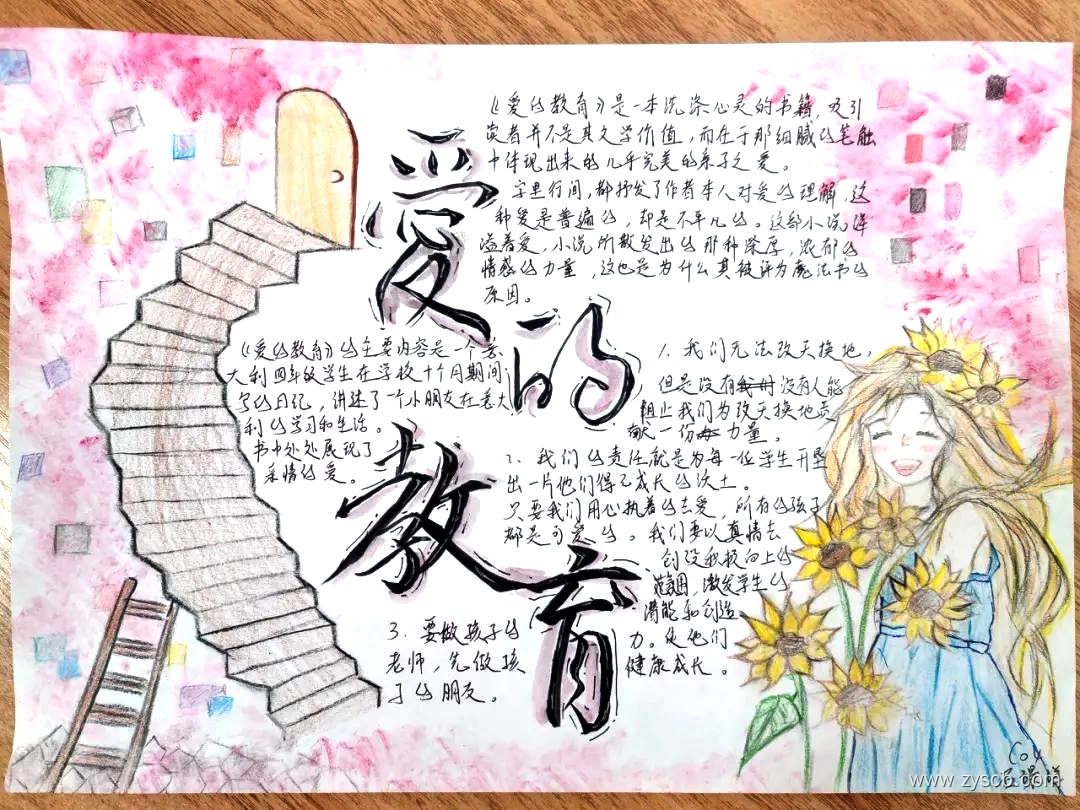 爱的教育
《爱的教育》是一本洗涤心灵的书籍,吸引
读者并不是其文学价值,而在于那细腻的笔触
中体现出来的几乎完美的亲子之爱。
字里行间,都抒发了作者本人对爱的理解,这
种爱是普遍的,却是不平凡的。这部小说洋
溢着爱,小说所散发出的那种深厚,浓郁的
情感的力量,这也是为什么其被评为魔法书的
原因。
《爱的教育》的主要内容是一个意
大利四年级学生在学校十个月期间
写的日记,讲述了一个小朋友在意大
利的学习和生活。
书中处处展现了
亲情的爱。
1. 我们无法改天换地,
但是没有 没有人能
阻止我们为改天换地贡
献一份 力量。
2. 我们的责任就是为每一位学生开垦
出一片他们得已成长的沃土。
只要我们用心执着的去爱,所有的孩子
都是可爱的。我们要以真情去
创设积极向上的
范围,激发学生的
潜能和创造
力。使他们
健康成长。
3. 要做孩子的
老师,先做孩
子的朋友。
Co4
www.zyscb.com